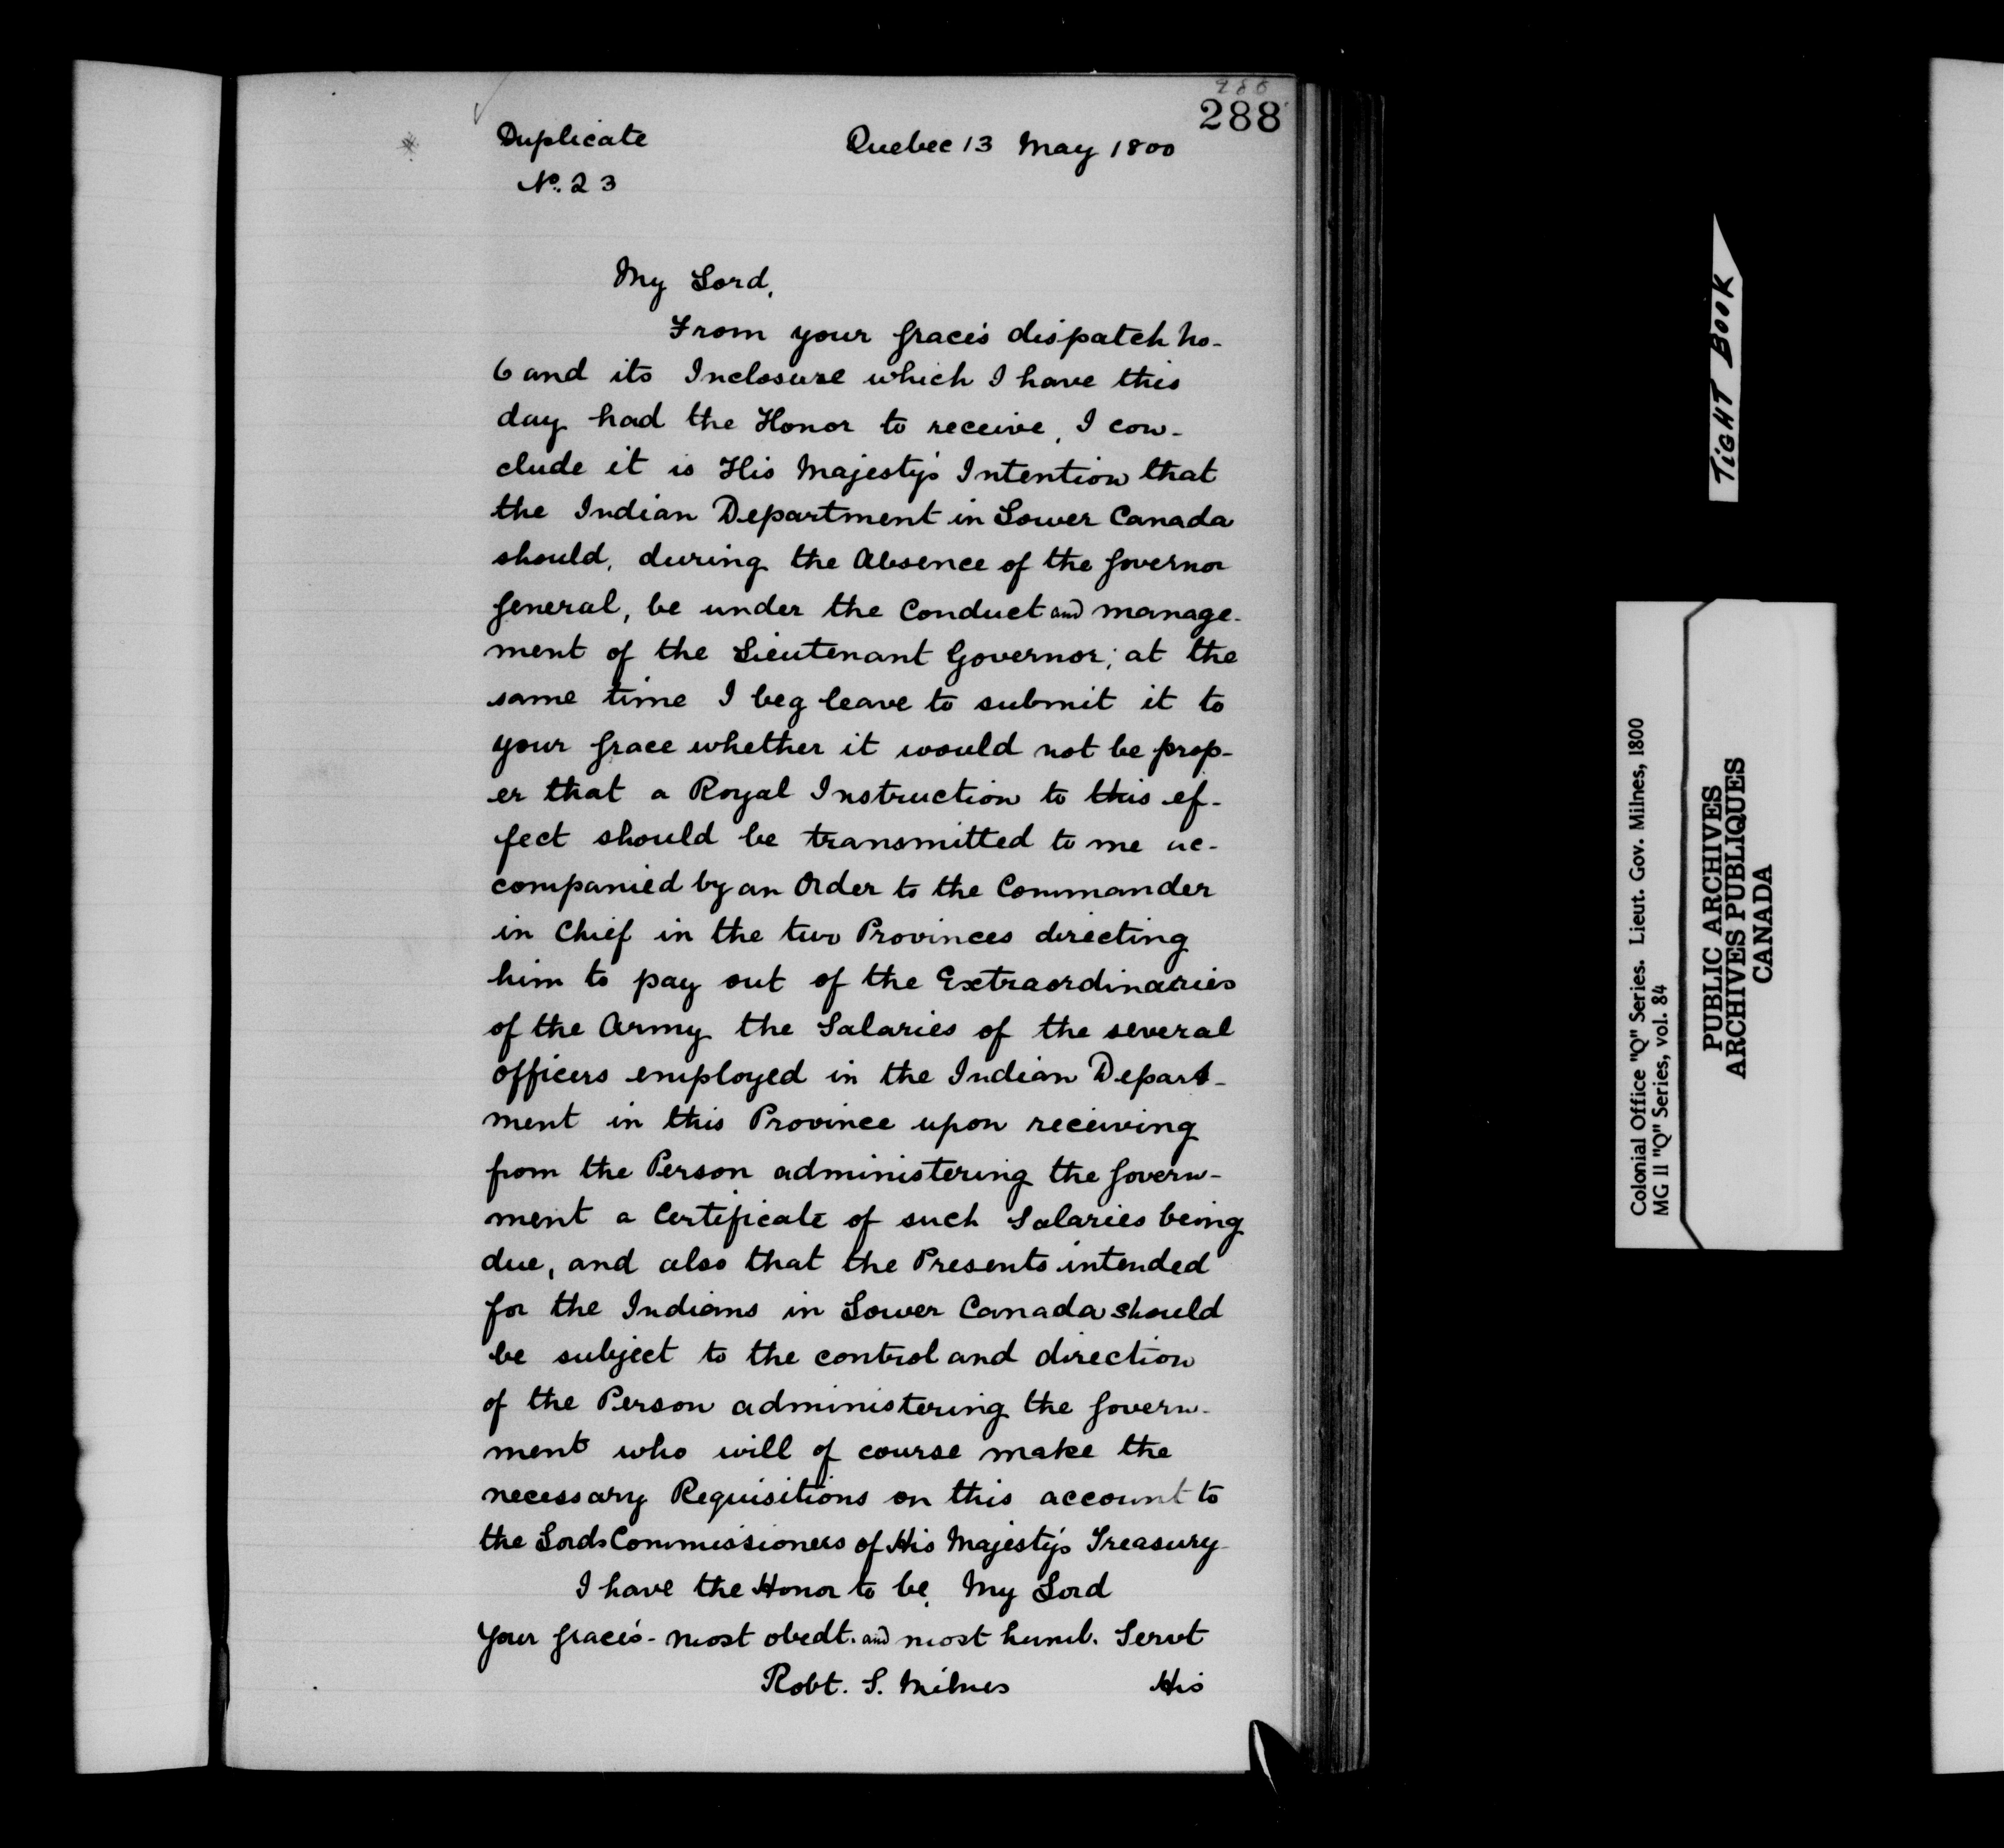 288
Duplicate
Quebec 13 May 1800
No. 23
My Lord,
From your Grace's dispatch No.
6 and its Inclosure which I have this
day had the Honor to receive, I con-
clude it is His Majesty's Intention that
the Indian Department in Lower Canada
should, during the Absence of the Governor
General, be under the Conduct and manage-
ment of the Lieutenant Governor; at the
same time I beg leave to submit it to
your Grace whether it would not be prop-
er that a Royal Instruction to this ef-
fect should be transmitted to me ac-
companied by an Order to the Commander
in Chief in the two Provinces directing
him to pay out of the Extraordinaries
of the Army the Salaries of the several
officers employed in the Indian Depart-
ment in this Province upon receiving
from the Person administering the Govern-
ment a Certificate of such Salaries being
due, and also that the Presents intended
for the Indians in Lower Canada should
be subject to the control and direction
of the Person administering the Govern-
ment who will of course make the
necessary Requisitions on this account to
the Lords Commissioners of His Majesty's Treasury
I have the Honor to be, My Lord
Your Grace's - most obedt. and most humb. Servt
Robt. S. Milnes
His
TIGHT BOOK
Colonial Office "Q" Series. Lieut. Gov. Milnes, 1800
MG 11 "Q" Series, vol. 84
PUBLIC ARCHIVES
ARCHIVES PUBLIQUES
CANADA